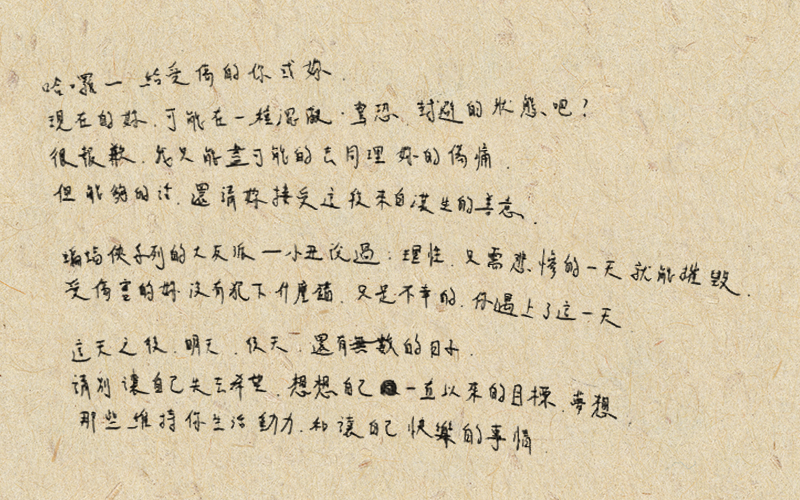 哈囉一 給受傷的你或妳.
現在的妳,可能在一種混亂、驚恐、封避的狀態吧?
很報歉,我只能盡可能的去同理妳的傷痛.
但能夠的話,還請妳接受這段來自陌生的善意.
蝙蝠俠系列的大反派一小丑說過:理性,只需悲慘的一天就能摧毀.
受傷害的妳沒有犯下什麼錯,只是不幸的,你遇上了這一天
這天之後,明天,後天,還有無數的日子.
請別讓自己失去希望,想想自己一直以來的目標,夢想
那些維持你生活動力,和讓自己快樂的事情